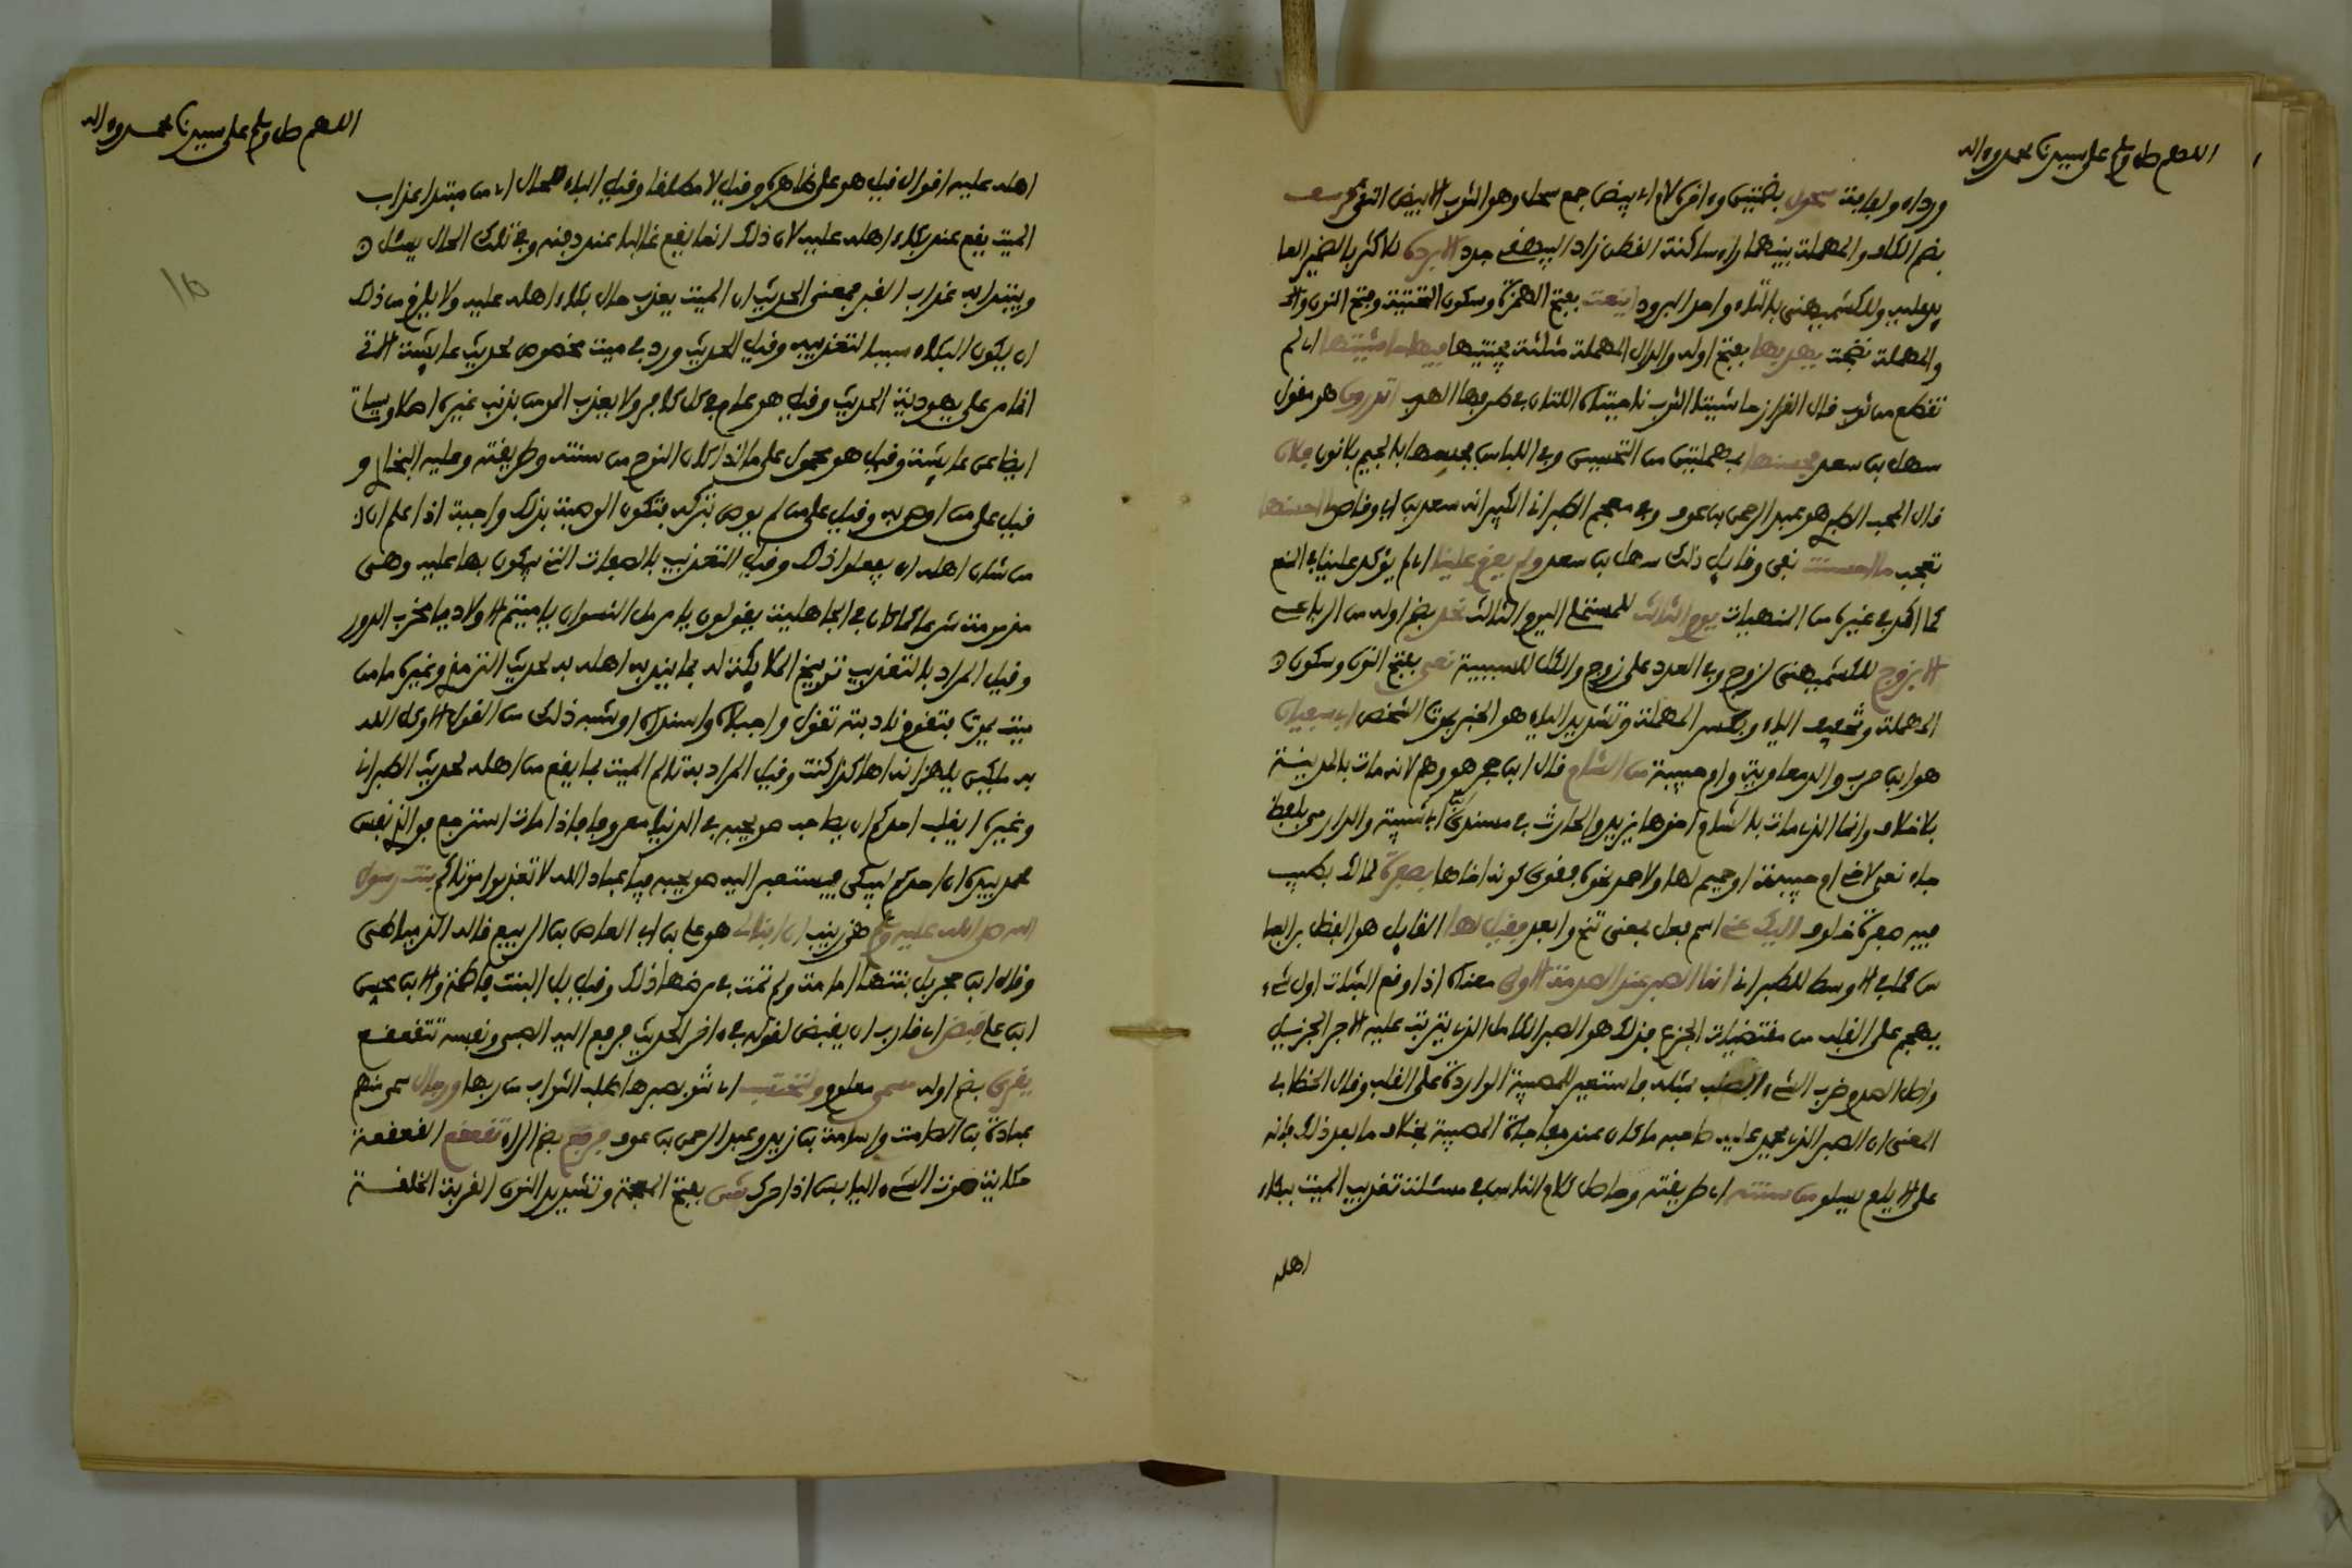 اللهم صل وسلم على سيدنا محمد وءاله
ورداء ولفافة سحول بضمتين وءاخره لام اي بيض جمع سحل وهو الثوب الابيض النقي كرسف
بضم الكاف والمهملة بينهما راء ساكنة القطن زاد البيهقي جدد البردة للاكثر بالضمير العا
يد عليه وللكشميهني بالتاء واحد البرود اينعت بفتح الهمزة وسكون التحتية وفتح النون وا
والمهملة نضجت يهدبها بفتح اوله والدال المهملة مثلثة يجتنيها فيها حاشيتها اي لم
تقطع من ثوب قال القزاز حاشيتا الثوب ناحيتاه اللتان في طرفها الهدب اتدرون هو مقول
سهل بن سعد فحسنها بمهملتين من التحسين وفي اللباس فجسها بالجيم بلا نون فلان
قال المحب الطبري هو عبد الرحمن بن عوف وفي معجم الطبراني الكبير انه سعد بن ابي وقاص احسنها
تعجب ما احسنت نفي وقايل ذلك سهل بن سعد ولم يعزم علينا اي لم يؤكد علينا في المنع
كما اكد في غيره من المنهيات يوم الثالث للمستملي اليوم الثالث تحد بضم اوله من الرباعي
الا بزوج للكشميهني لزوج وفي العدد على زوج والكل للسببية نعي بفتح النون وسكون
المهملة وتخفيف الياء وبكسر المهملة وتشديد الياء هو الخبر بموت الشخص ابي سفيان
هو ابن حرب والد معاوية وام حبيبة من الشام قال ابن حجر هو وهم لانه مات بالمدينة
بلا خلاف وانما الذي مات بالشام اخوها يزيد والحارث في مسند ابن ابي شيبة والدارمي بلفظ
جاء نعي لاخي ام حبيبة او حميم لها ولاحمد نحوه فقوي كونه اخاها بصفرة لمالك بطيب
فيه صفرة خلوق اليك عني اسم فعل بمعنى تنح وابعد فقيل لها القايل هو الفضل بن العبا
س كما في الاوسط للطبراني انما الصبر عند الصدمة الاولى معناه اذا وقع الثبات اول شيء
يهجم على القلب من مقتضيات الجزع فذلك هو الصبر الكامل الذي يترتب عليه الاجر الجزيل
واصل الصدم ضرب الشيء الصلب بمثله فاستعير للمصيبة الواردة على القلب وقال الخطابي
المعنى ان الصبر الذي يحمد عليه صاحبه ما كان عند مفاجاة المصيبة بخلاف ما بعد ذلك فانه
على الايام يسلو من سنته اي طريقته وحاصل كلام الناس في مسئلة تعذيب الميت ببكاء
اهله
اللهم صل وسلم على سيدنا محمد وءاله
اهله عليه اقوال قيل هو على ظاهره وقيل لا مطلقا وقيل الباء للحال اي من مبتدا عذاب
الميت يقع عند بكاء اهله عليه لان ذلك انما يقع غالبا عند دفنه وفي تلك الحال يسئل
ويبتدا به عذاب القبر فمعنى الحديث ان الميت يعذب حال بكاء اهله عليه ولا يلزم من ذلك
ان يكون البكاء سببا لتعذيبه وقيل الحديث ورد في ميت مخصوص لحديث عايشة الاتي
انما مر على يهودية الحديث وقيل هو عام في كل كافر ولا يعذب المومن بذنب غيره اصلا وسياتي
ايضا عن عايشة وقيل هو محمول على ما اذا كان النوح من سنته وطريقته وعليه البخاري و
قيل على من اوصى به وقيل على من لم يوص بتركه فتكون الوصية بذلك واجبة اذا علم ان
من شان اهله ان يفعلوا ذلك وقيل التعذيب بالصفات التي يبكون بها عليه وهي
مذمومة شرعا كما كان في الجاهلية يقولون يا مرمل النسوان يا ميتم الاولاد يا مخرب الدور
وقيل المراد بالتعذيب توبيخ الملايكة له بما يندبه اهله به لحديث الترمذي وغيره ما من
ميت يموت فتقوم نادبته تقول واجبلاه واسنداه او شبه ذلك من القول الا وكل الله
به ملكين يلهزانه اهاكذا كنت وقيل المراد به تالم الميت بما يقع من اهله لحديث الطبراني
وغيره ايغلب احدكم ان يصاحب صويحبه في الدنيا معروفا فاذا مات استرجع فوالذي نفس
محمد بيده ان احدكم ليبكي فيستعبر اليه صويحبه فيا عباد الله لا تعذبوا موتاكم بنت رسول
الله صلى الله عليه وسلم هي زينب ان ابنا لي هو علي بن ابي العاص بن الربيع قاله الدمياطي
وقال ابن حجر بل بنتها امامة ولم تمت في مرضها ذلك وقيل بل البنت فاطمة والابن محسن
ابن علي قبض اي قارب ان يقبض لقوله في ءاخر الحديث فرفع اليه الصبي ونفسه تتقعقع
يقرئ بضم اوله مسمى معلوم ولتحتسب اي تنو بصبرها طلب الثواب من ربها ورجال سمى منهم
عبادة بن الصامت واسامة بن زيد وعبد الرحمن بن عوف فرفع بضم الراء تقعقع القعقعة
حكاية صوت الشيء اليابس اذا حرك شن بفتح المعجمة وتشديد النون القربة الخلقة